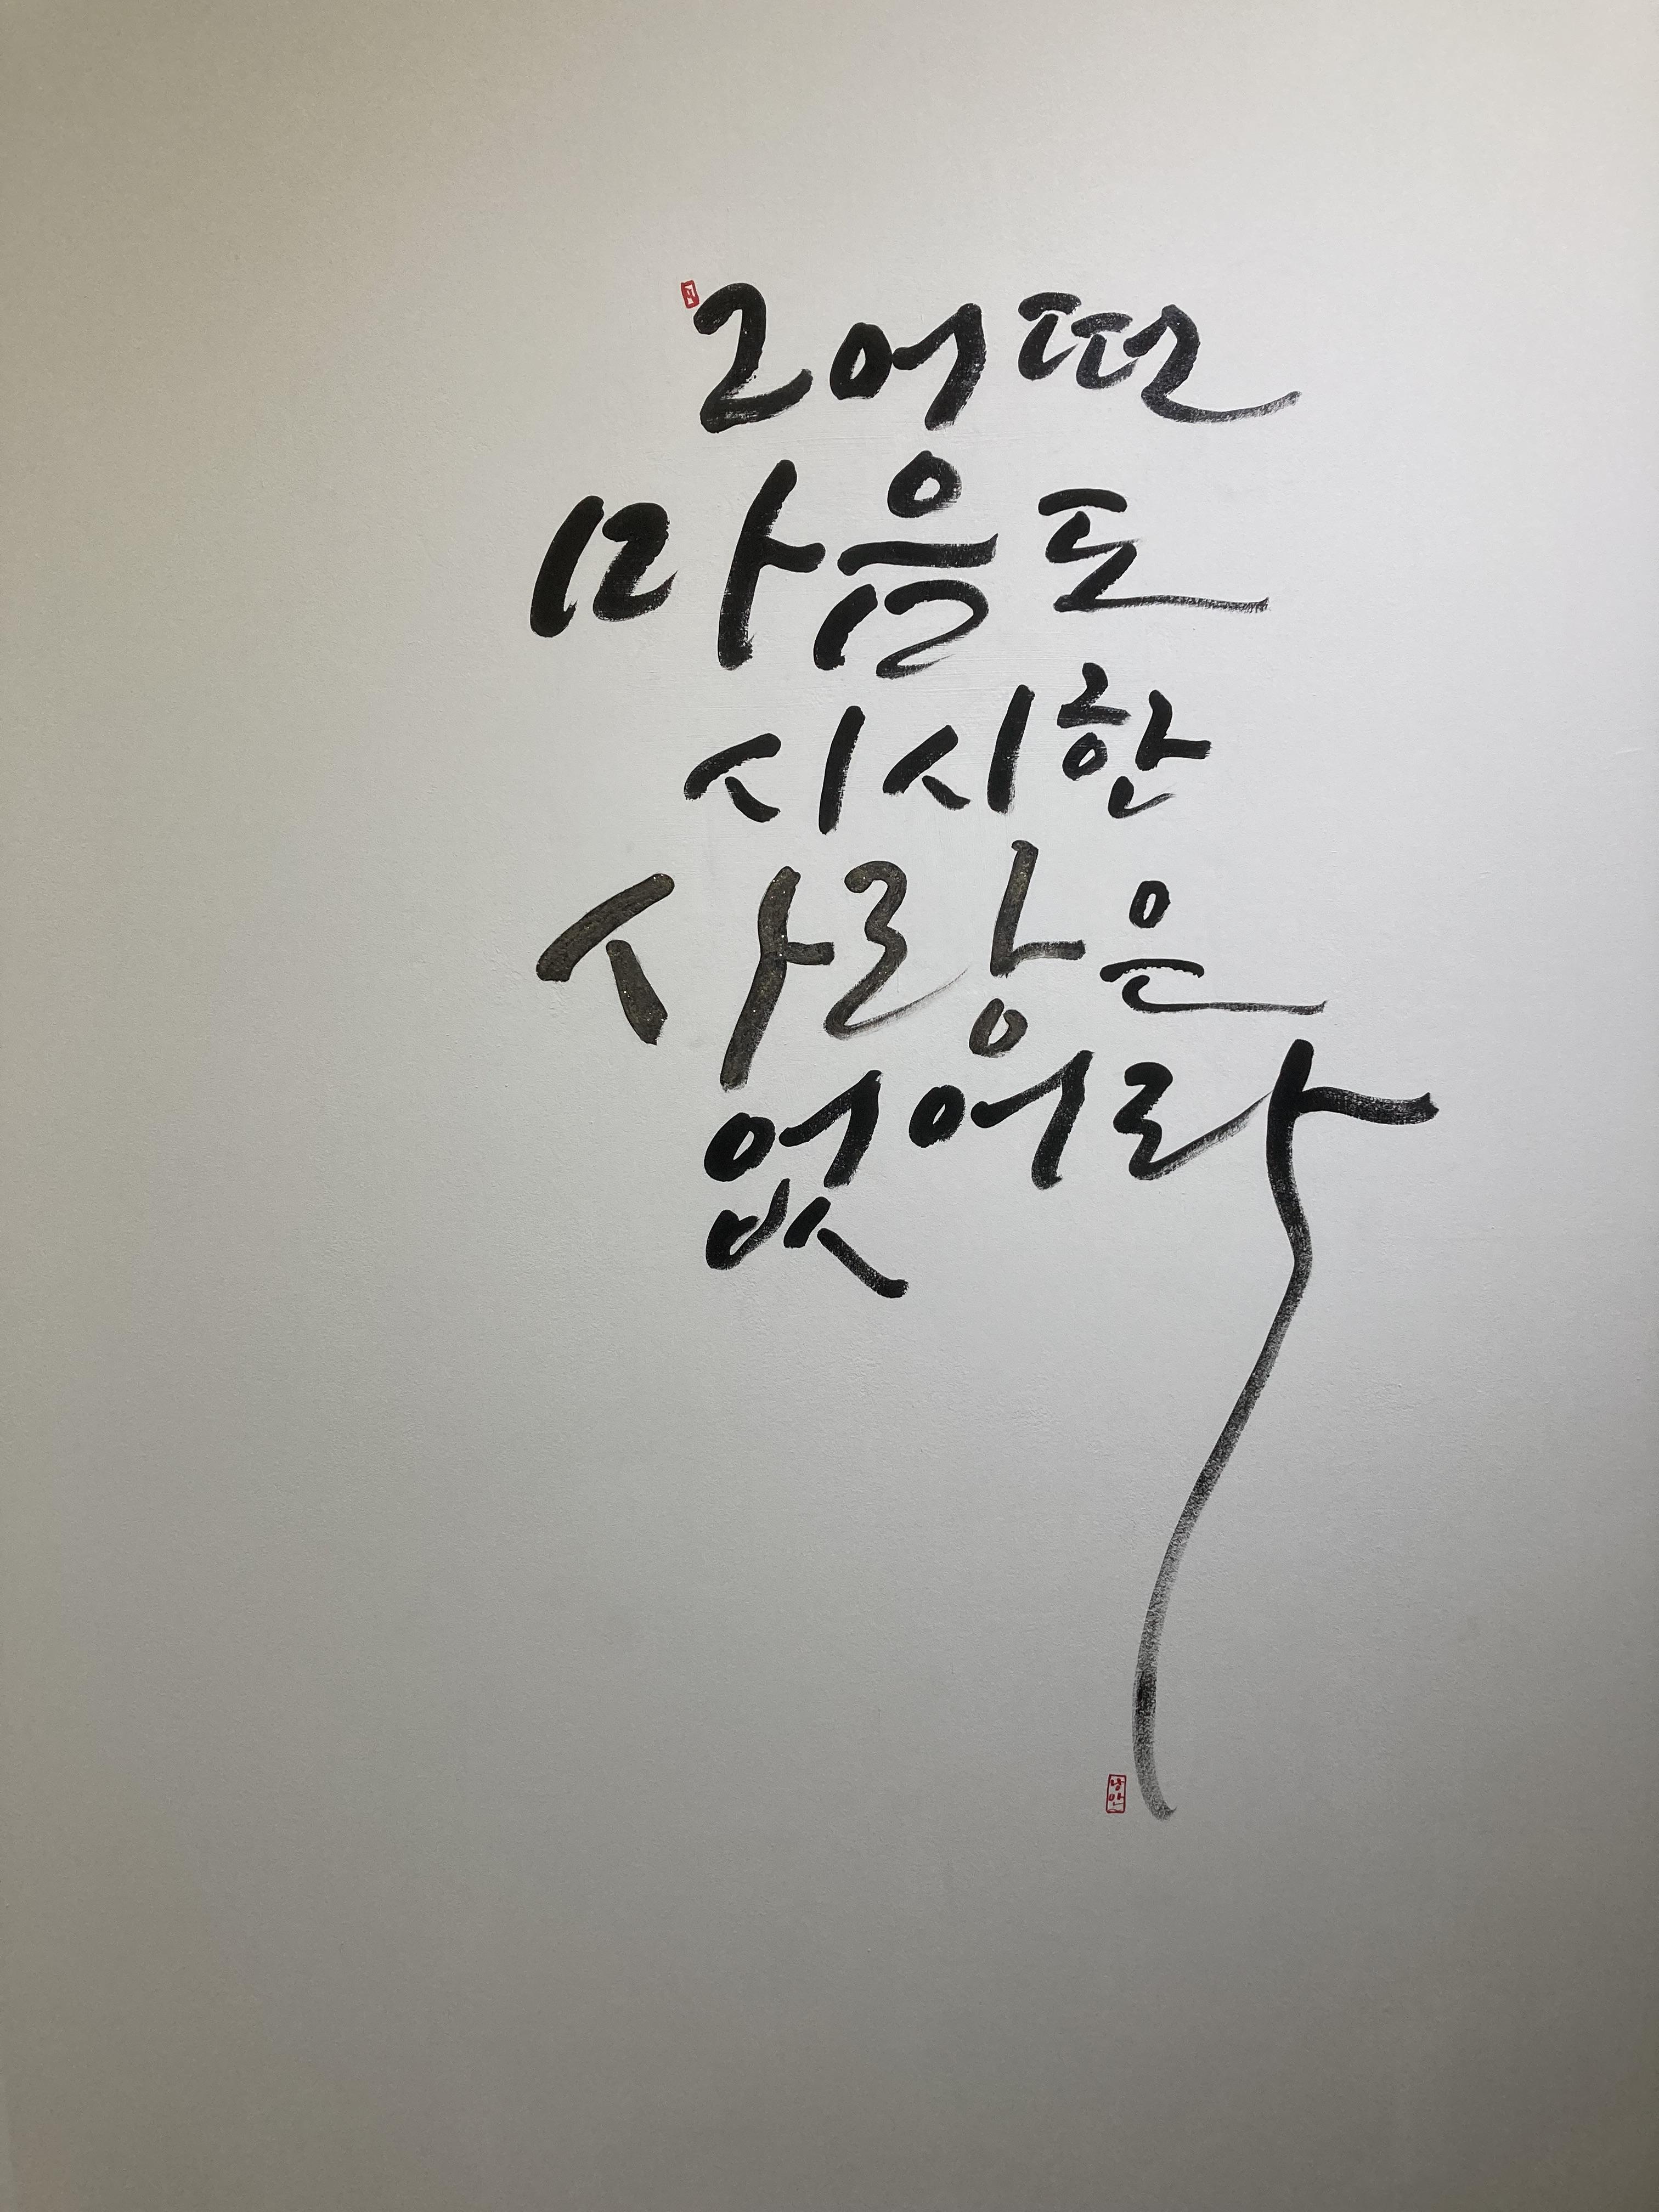 그 어떤
마음도
시시한
사랑은
없어라
낭만